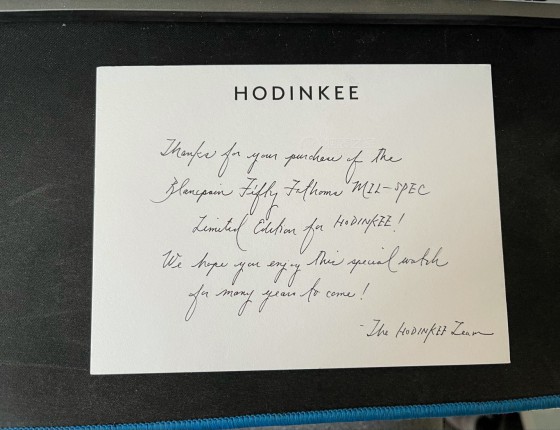 HODINKEE
Thanks for your purchase of the
Blancpain Fifty Fathoms MIL-SPEC
Limited Edition for HODINKEE!
We hope you enjoy this special watch
for many years to come!
- The HODINKEE Team